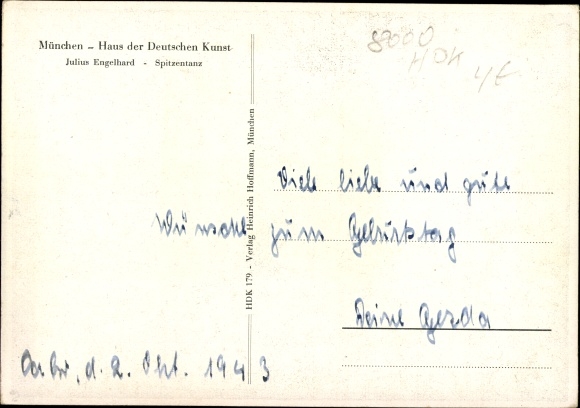 München – Haus der Deutschen Kunst
Julius Engelhard - Spitzentanz
8000
HDK
HDK 179 - Verlag Heinrich Hoffmann, München
Viele liebe und gute
Wünsche zum Geburtstag
Deine Gerda
d. 2. Okt. 1943